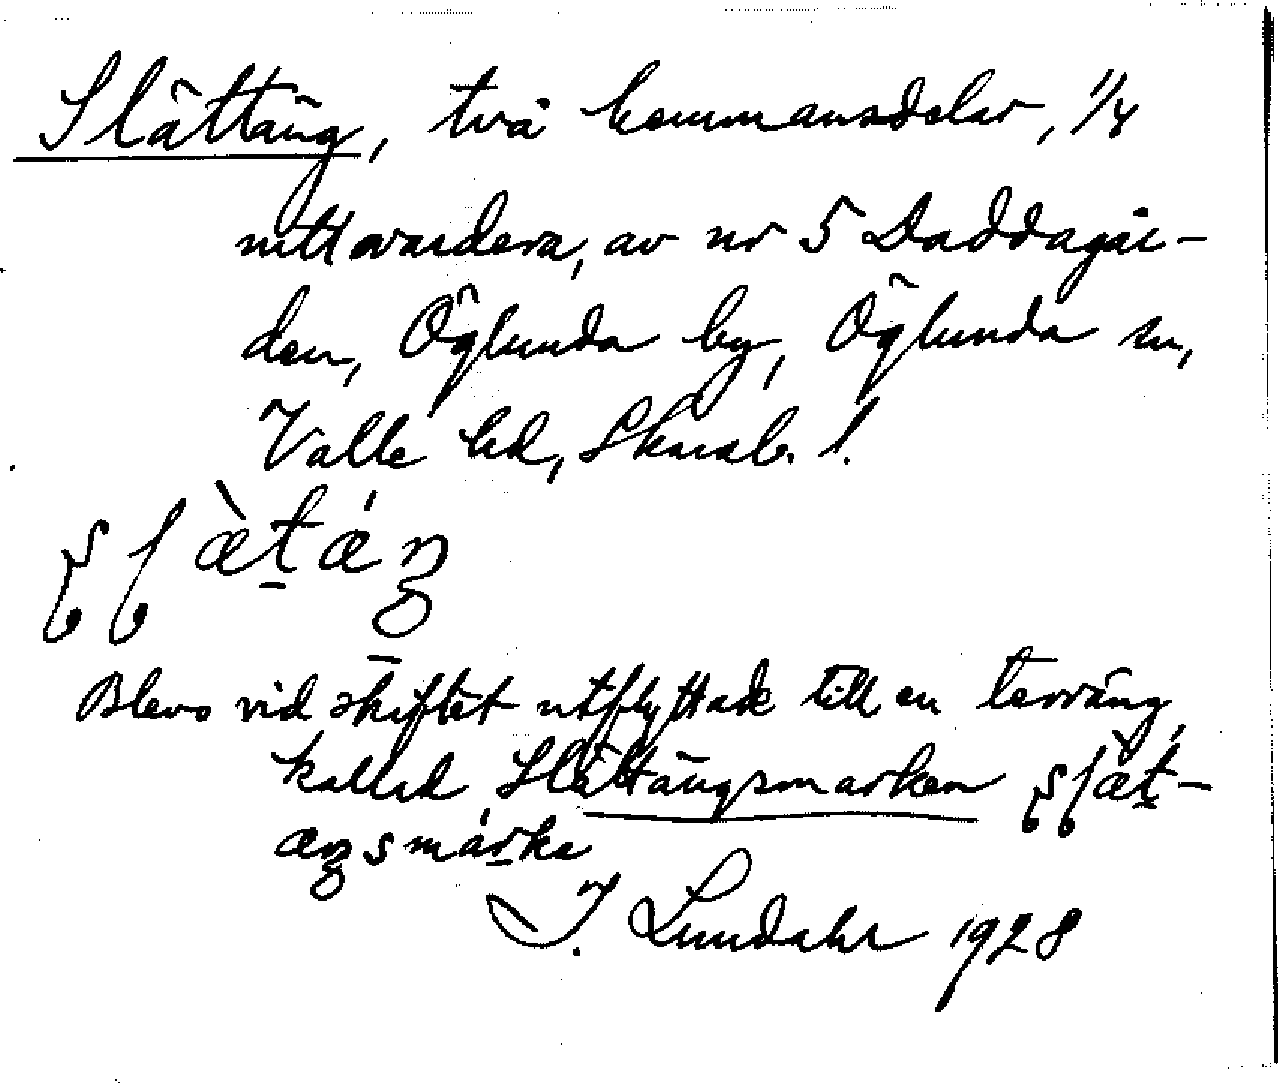 Slättäng, två hemmansdelar, 1/4
mtl vardera, av nr 5 Daddagår-
den, Öglunda by, Öglunda sn,
Valle hd, Skarab. l.
Blevo vid skiftet utflyttade till en terräng,
kallad Slättängsmarken
I. Lundahl 1928